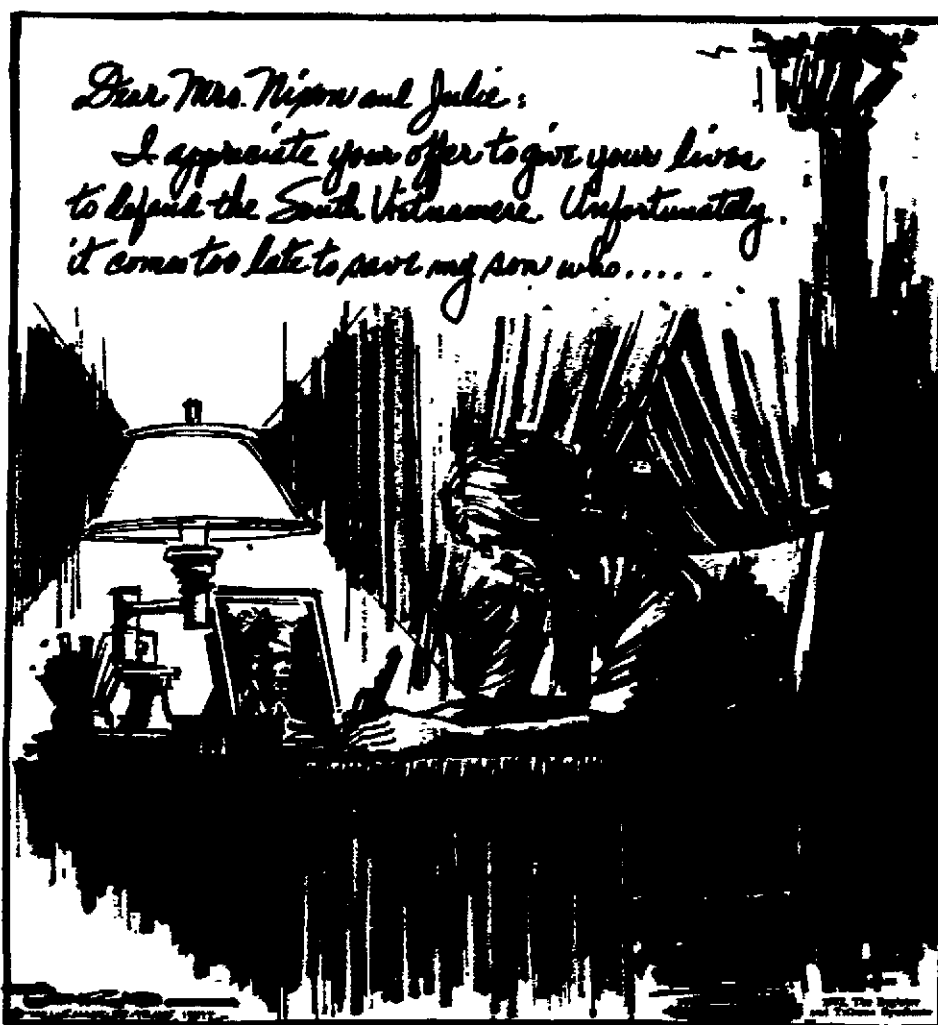 Dear Mrs. Nixon and Julie:
I appreciate your offer to give your lives
to defend the South Vietnamese. Unfortunately,
it comes too late to save my son who.....
The Register
and Tribune Syndicate